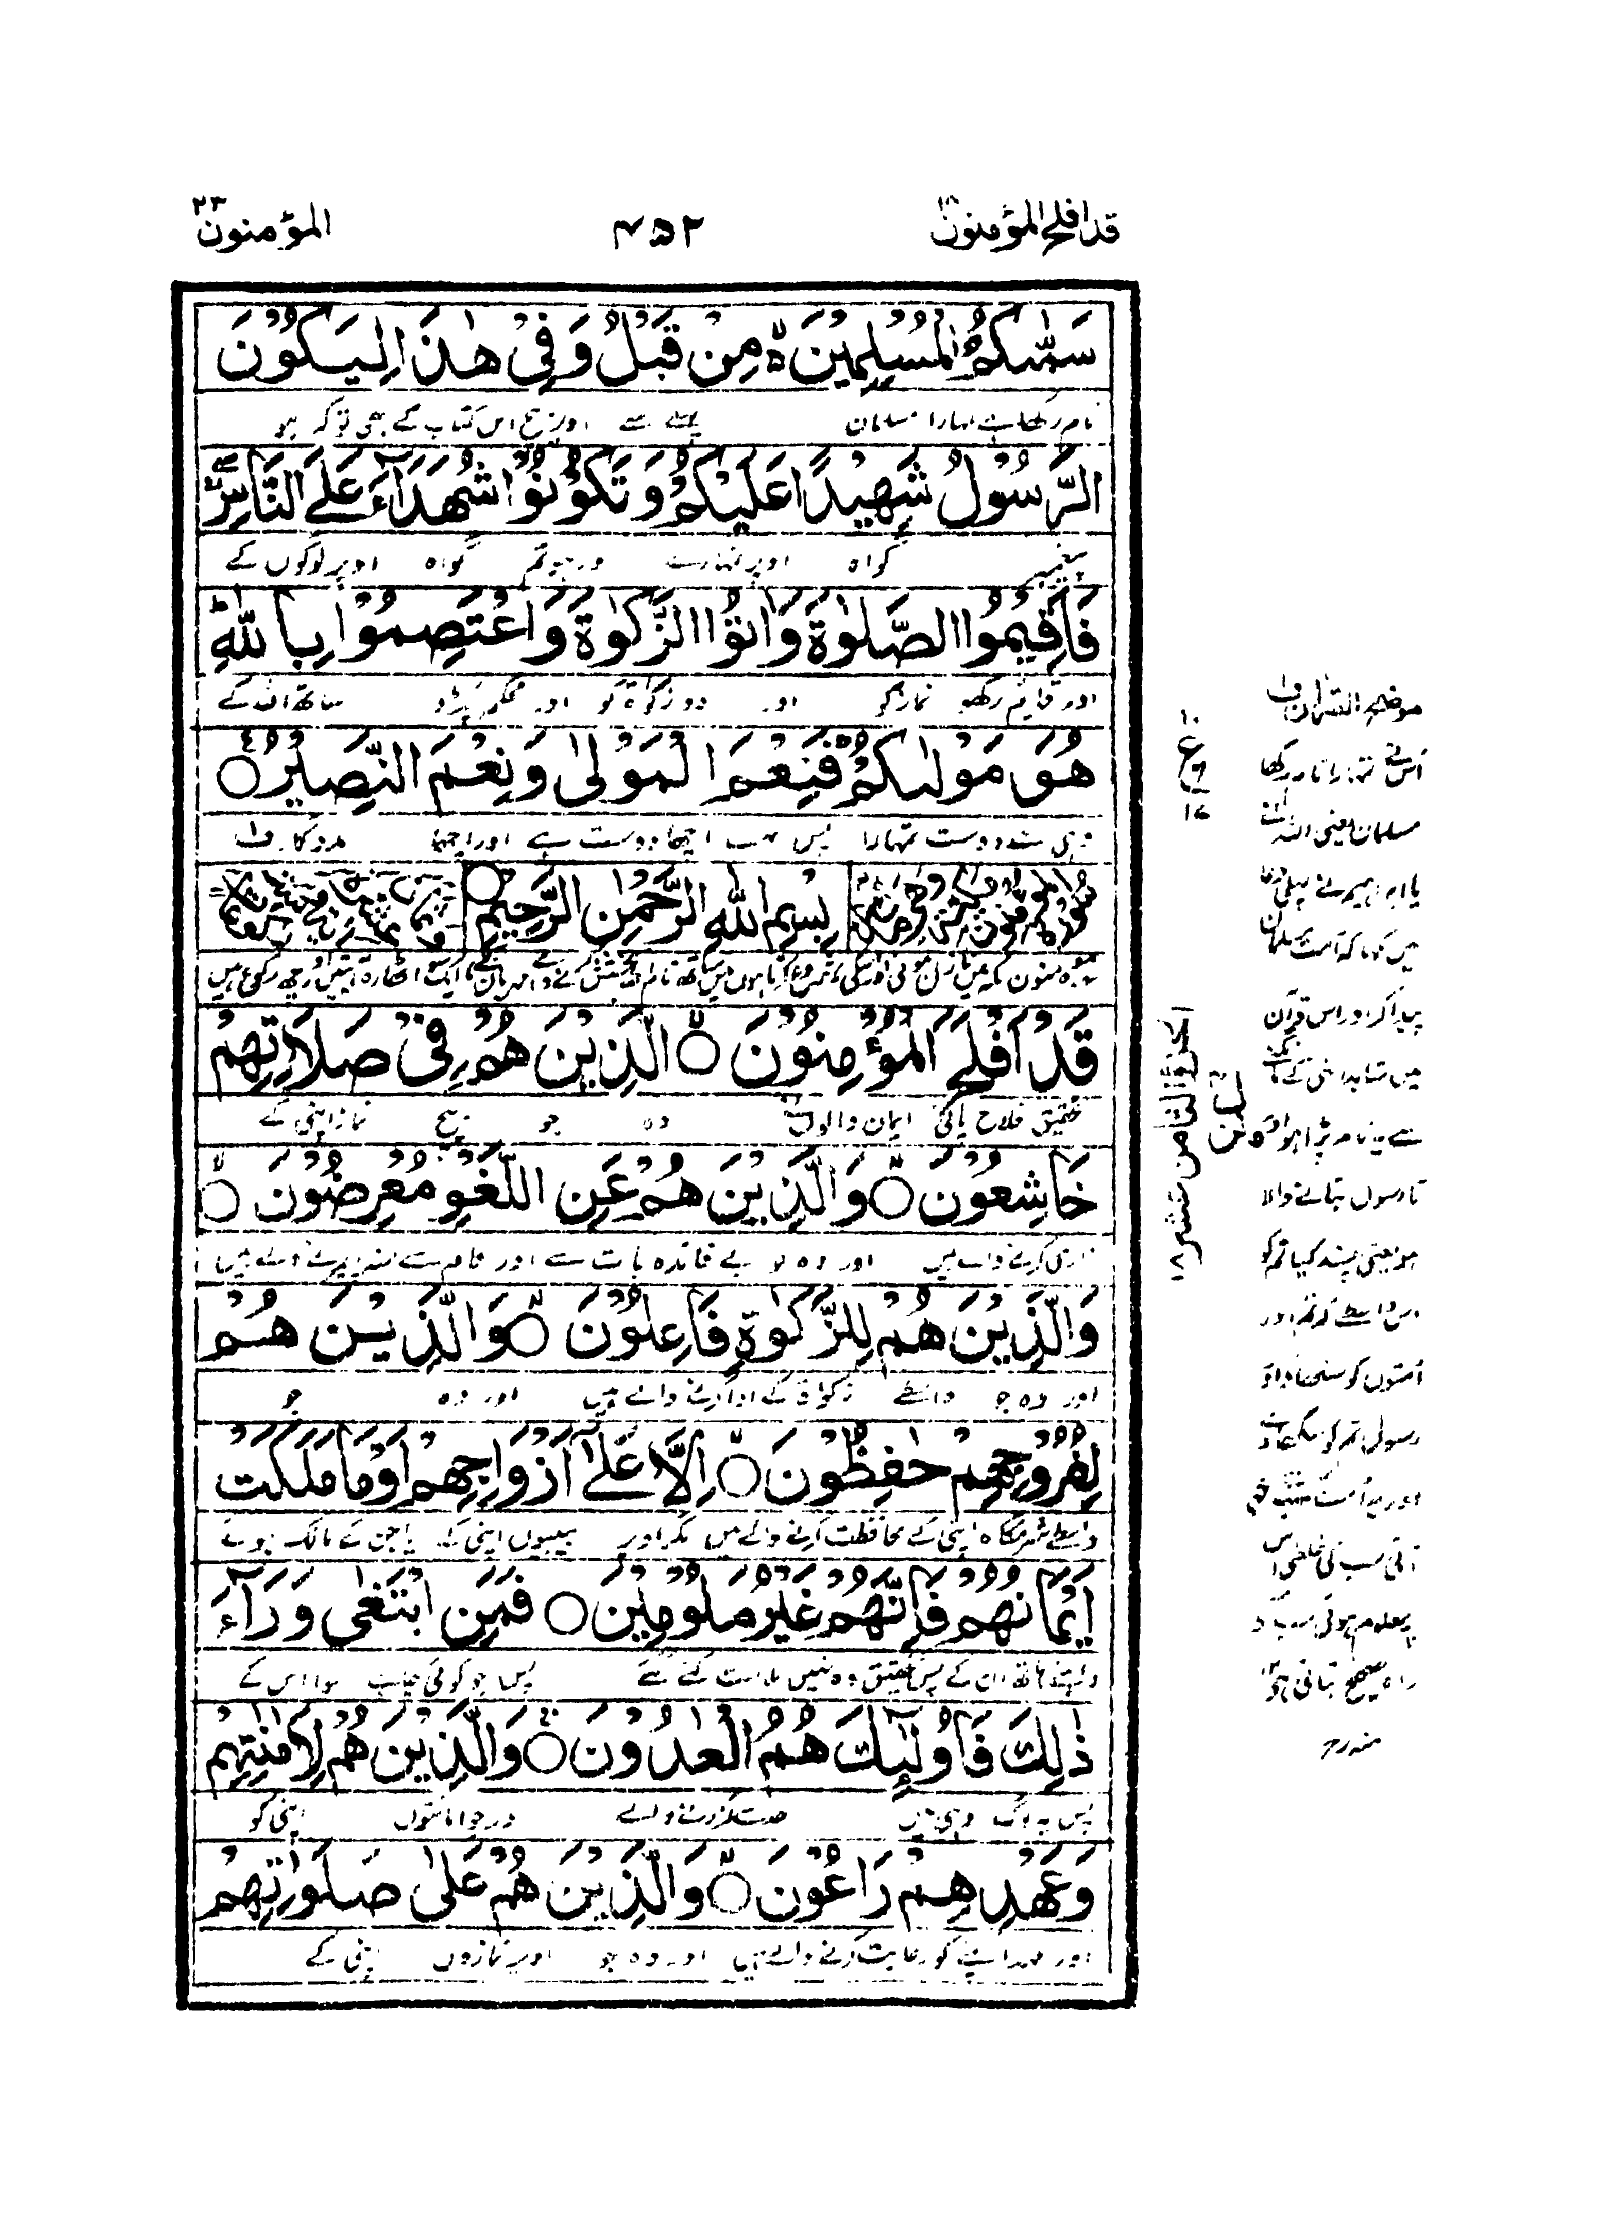 قد افلح المؤمنون ۱۸
۴۵۲
المؤمنون ۲۳
سَمّٰىكُمُ الْمُسْلِمِيْنَ ۙ مِنْ قَبْلُ وَفِيْ هٰذَا لِيَكُوْنَ
نام رکھا ہے تمہارا مسلمان پہلے سے اور بیچ اس کتاب کے بھی توکہ ہو
الرَّسُوْلُ شَهِيْدًا عَلَيْكُمْ وَتَكُوْنُوْا شُهَدَآءَ عَلَى النَّاسِ
پیغمبر گواہ اوپر تمہارے اور ہو تم گواہ اوپر لوگوں کے
فَاَقِيْمُوا الصَّلٰوةَ وَاٰتُوا الزَّكٰوةَ وَاعْتَصِمُوْا بِاللّٰهِ ؕ
اور قایم رکھو نماز کو اور دو زکوٰۃ کو اور محکم پکڑو ساتھ اللہ کے
هُوَ مَوْلٰىكُمْ ۚ فَنِعْمَ الْمَوْلٰى وَنِعْمَ النَّصِيْرُ ○
دوست تمہارا پس اچھا دوست ہے اور اچھا مددگار ف
بِسْمِ اللّٰهِ الرَّحْمٰنِ الرَّحِيْمِ ○
قَدْ اَفْلَحَ الْمُؤْمِنُوْنَ ○ الَّذِيْنَ هُمْ فِيْ صَلَاتِهِمْ
تحقیق فلاح پائی ایمان والوں وہ جو بیچ نماز اپنی کے
خَاشِعُوْنَ ○ وَالَّذِيْنَ هُمْ عَنِ اللَّغْوِ مُعْرِضُوْنَ ○
زاری کرنے والے ہیں اور وہ جو بے فائدہ بات سے اور کام سے منہ پھیرنے والے ہیں
وَالَّذِيْنَ هُمْ لِلزَّكٰوةِ فَاعِلُوْنَ ○ وَالَّذِيْنَ هُمْ
اور وہ جو واسطے زکوٰۃ کے ادا کرنے والے ہیں اور وہ جو
لِفُرُوْجِهِمْ حٰفِظُوْنَ ○ اِلَّا عَلٰٓى اَزْوَاجِهِمْ اَوْ مَا مَلَكَتْ
واسطے شرمگاہ اپنی کے محافظت کرنے والے ہیں مگر اوپر بیبیوں اپنی کے یا جن کے مالک ہوئے
اَيْمَانُهُمْ فَاِنَّهُمْ غَيْرُ مَلُوْمِيْنَ ○ فَمَنِ ابْتَغٰى وَرَآءَ
داہنے ہاتھ ان کے پس تحقیق وہ نہیں ملامت کئے گئے پس جو کوئی چاہے سوا اس کے
ذٰلِكَ فَاُولٰٓئِكَ هُمُ الْعٰدُوْنَ ○ وَالَّذِيْنَ هُمْ لِاَمٰنٰتِهِمْ
پس یہ لوگ وہی ہیں حد سے گزرنے والے اور جو امانتوں اپنی کو
وَعَهْدِهِمْ رَاعُوْنَ ○ وَالَّذِيْنَ هُمْ عَلٰى صَلَوٰتِهِمْ
اور عہد اپنے کو رعایت کرنے والے ہیں اور وہ جو اوپر نمازوں اپنی کے
۱۰
ع
۱۷
الجزء الثامن عشر ۱۸
موضح القرآن ف
اس نے تمہارا نام رکھا
مسلمان یعنی اللہ نے
یا ابراہیم نے پہلی دعا
میں کہا کہ امت مسلمان
پیدا کر اور اس قرآن
میں شاید ان ہی کے مانگنے
سے یہ نام پڑا ہو اور
تا رسول بتانے والا
ہو یعنی پسند کیا تم کو
اس واسطے کہ تم اور
امتوں کو سکھاؤ اور
رسول تم کو سکھاوے
اور یہ امت سب سے
راہ صحیح بتاتی ہے
منہ رح